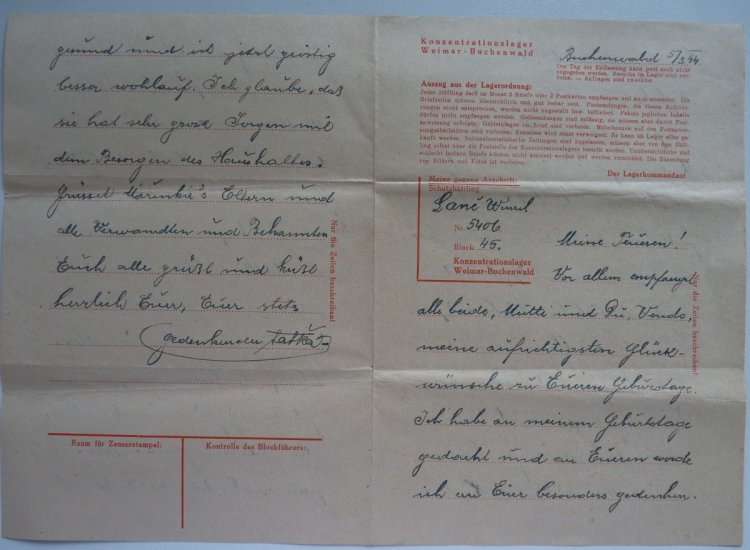 Konzentrationslager
Weimar-Buchenwald
Buchenwald 5/3.44.
Der Tag der Entlassung kann jetzt noch nicht
angegeben werden. Besuche im Lager sind verboten.
boten. — Anfragen sind zwecklos.
Auszug aus der Lagerordnung:
Jeder Häftling darf im Monat 2 Briefe oder 2 Postkarten empfangen und auch absenden. Die
Briefzeilen müssen übersichtlich und gut lesbar sein. Postsendungen, die diesen Anforderungen
nicht entsprechen, werden nicht zugestellt bzw. befördert. Pakete jeglichen Inhalts
dürfen nicht empfangen werden. Geldsendungen sind zulässig, sie müssen aber durch Postanweisung
erfolgen; Geldeinlagen im Brief sind verboten. Mitteilungen auf den Postanweisungsabschnitten
sind verboten; Annahme wird sonst verweigert. Es kann im Lager alles gekauft
werden. Nationalsozialistische Zeitungen sind zugelassen, müssen aber von dem Häftling
selbst über die Poststelle des Konzentrationslagers bestellt werden. Unübersichtliche und
schlecht lesbare Briefe können nicht zensiert werden und werden vernichtet. Die Zusendung
von Bildern und Fotos ist verboten.
Der Lagerkommandant
Meine genaue Anschrift:
Schutzhäftling
Nr. 5406
Block 45.
Konzentrationslager
Weimar-Buchenwald
Meine Teueren!
Vor allem empfanget
alle beide, Mutti und Du, Vendo,
meine aufrichtigsten Glück-
wünsche zu Eueren Geburtstage.
Ich habe an meinem Geburtstage
gedacht und an Eueren werde
ich an Euer besonders gedenken.
Nur die Zeilen beschreiben!
gesund und ist jetzt geistig
besser wohlauf. Ich glaube, daß
sie hat sehr grose Sorgen mit
dem Besorgen des Haushaltes.
Grüsset Mařenka's Eltern und
alle Verwandten und Bekannten
Euch alle grüßt und küßt
herzlich Euer, Euer stets
gedenkender Tatka
Nur die Zeilen beschreiben!
Raum für Zensurstempel:
Kontrolle des Blockführers: